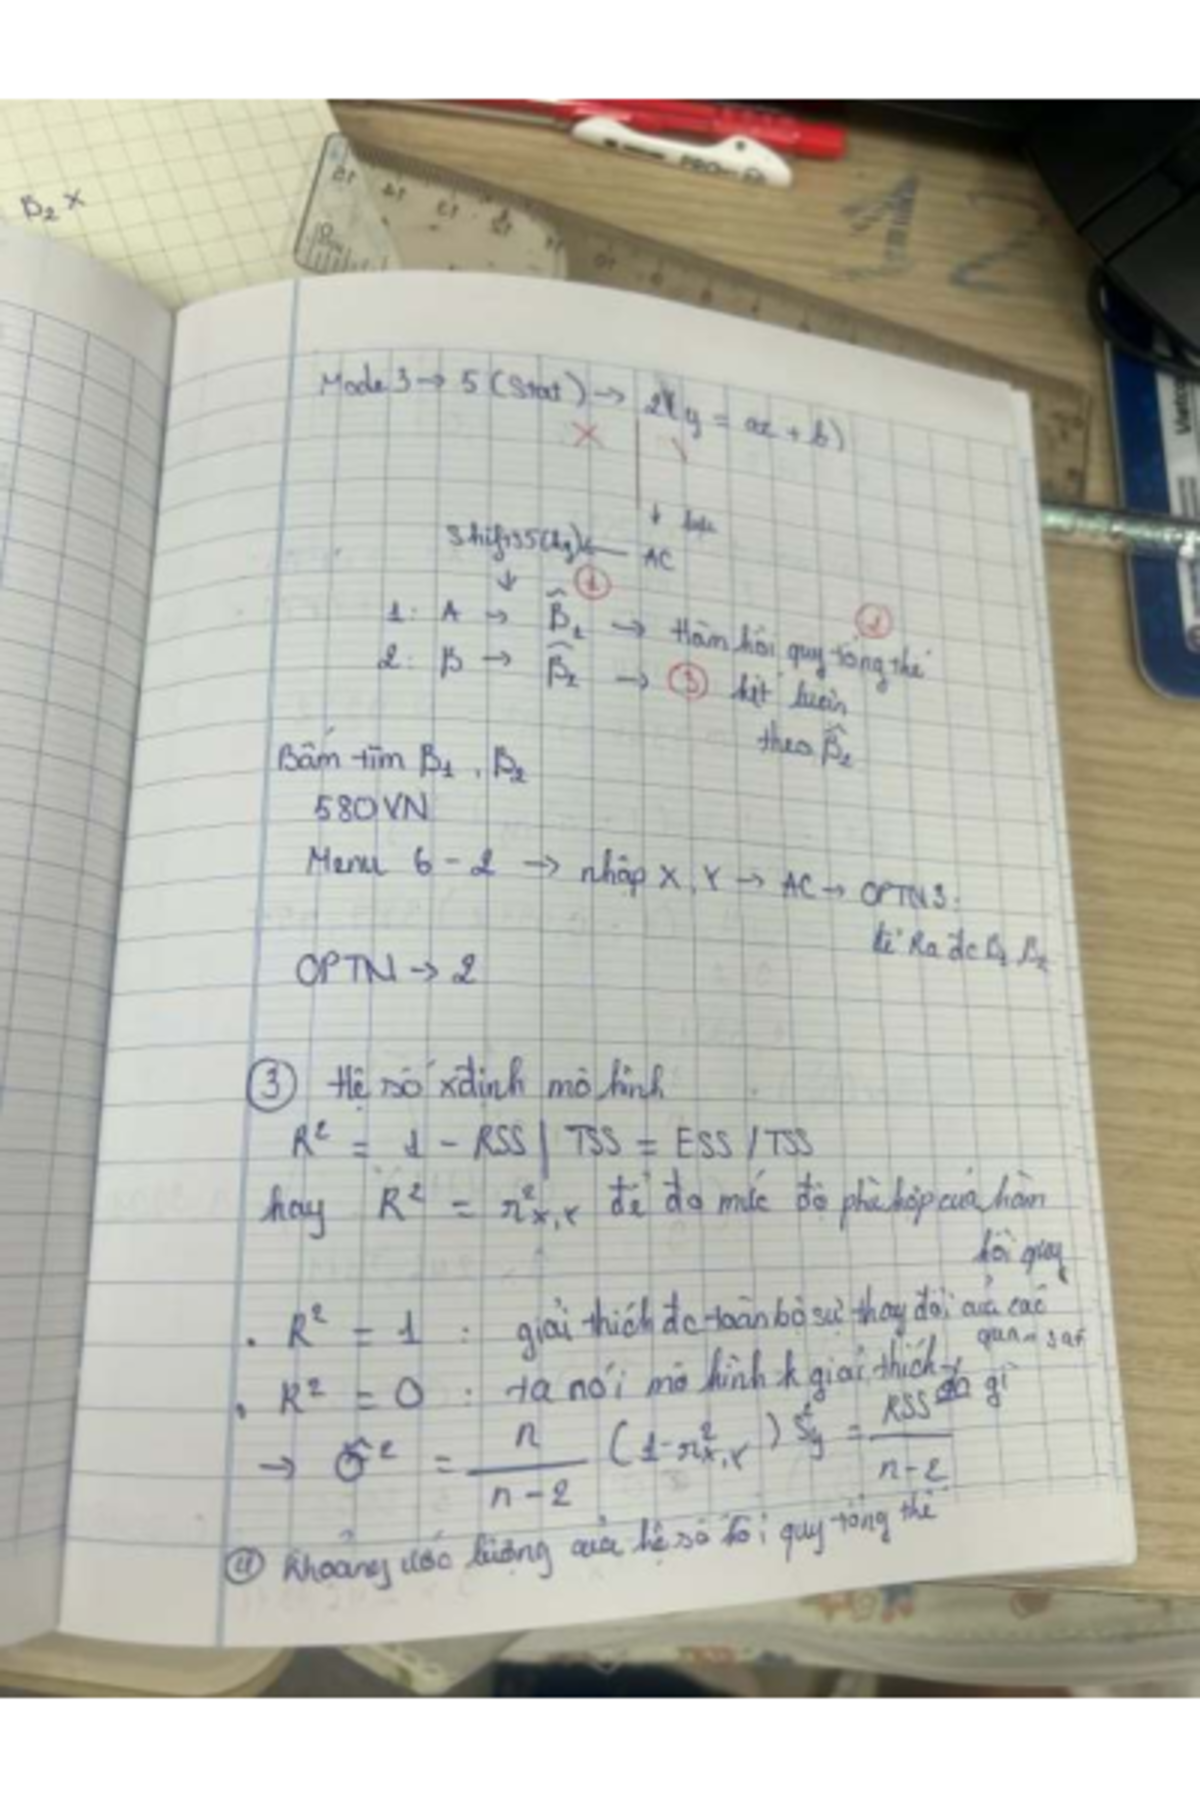 B₂ X
PRO
Mode 3 → 5 (Stat) → 2 (y = ax + b)
Shift 5 ← AC
1: A → B̂₁ → Hàm hồi quy tổng thể
2: B → B̂₂ → ③ kết luận
theo B̂₂
Bấm tìm B₁, B₂
580VN
Menu 6 - 2 → nhập X, Y → AC → OPTN 3:
Ra đc B₁ B₂
OPTN → 2
③ Hệ số xđịnh mô hình
R² = 1 - RSS / TSS = ESS / TSS
hay R² = r²x,Y để đo mức độ phù hợp của hàm
hồi quy
. R² = 1 : giải thích đc toàn bộ sự thay đổi của các
quan sát
. R² = 0 : ta nói mô hình k giải thích gì
→ σ̂² = n / (n-2) (1-r²x,Y) S²y = RSS / (n-2)
④ Khoảng ước lượng của hệ số hồi quy tổng thể